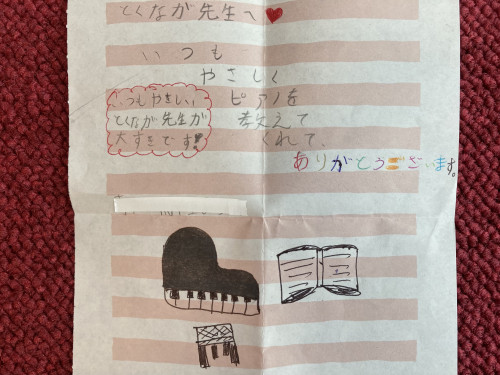 とくなが先生へ
いつも
やさしく
ピアノを
教えて
くれて、
ありがとうございます。
いつもやさしい
とくなが先生が
大すきです